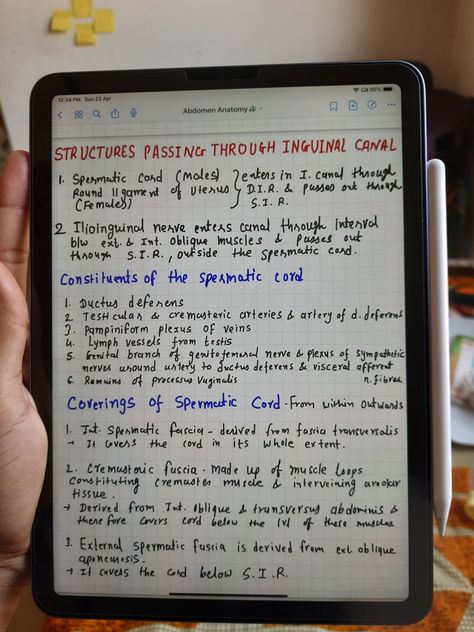 12:34 PM Sun 23 Apr
95%
Abdomen Anatomy
STRUCTURES PASSING THROUGH INGUINAL CANAL
1. Spermatic Cord (Males) } enters in I. canal through
Round ligament of Uterus D.I.R. & passes out through
(Females) S.I.R.
2 Ilioinguinal nerve enters canal through interval
b/w ext. & Int. oblique muscles & passes out
through S.I.R., outside the spermatic cord.
Constituents of the spermatic cord
1. Ductus deferens
2. Testicular & cremasteric arteries & artery of d. deferens
3. Pampiniform plexus of veins
4. Lymph vessels from testis
5. Genital branch of genitofemoral nerve & plexus of sympathetic
nerves around artery to ductus deferens & visceral afferent
n. fibres
6. Remains of processus vaginalis
Coverings of Spermatic Cord - From within Outwards
1. Int. Spermatic fascia - derived from fascia transversalis
→ It covers the cord in its whole extent.
2. Cremasteric fascia - Made up of muscle loops
constituting cremaster muscle & interveining areolar
tissue.
→ Derived from Int. Oblique & transversus abdominis &
therefore covers cord below the lvl of these muscles
3. External spermatic fascia is derived from ext. oblique
aponeurosis.
→ It covers the cord below S.I.R.